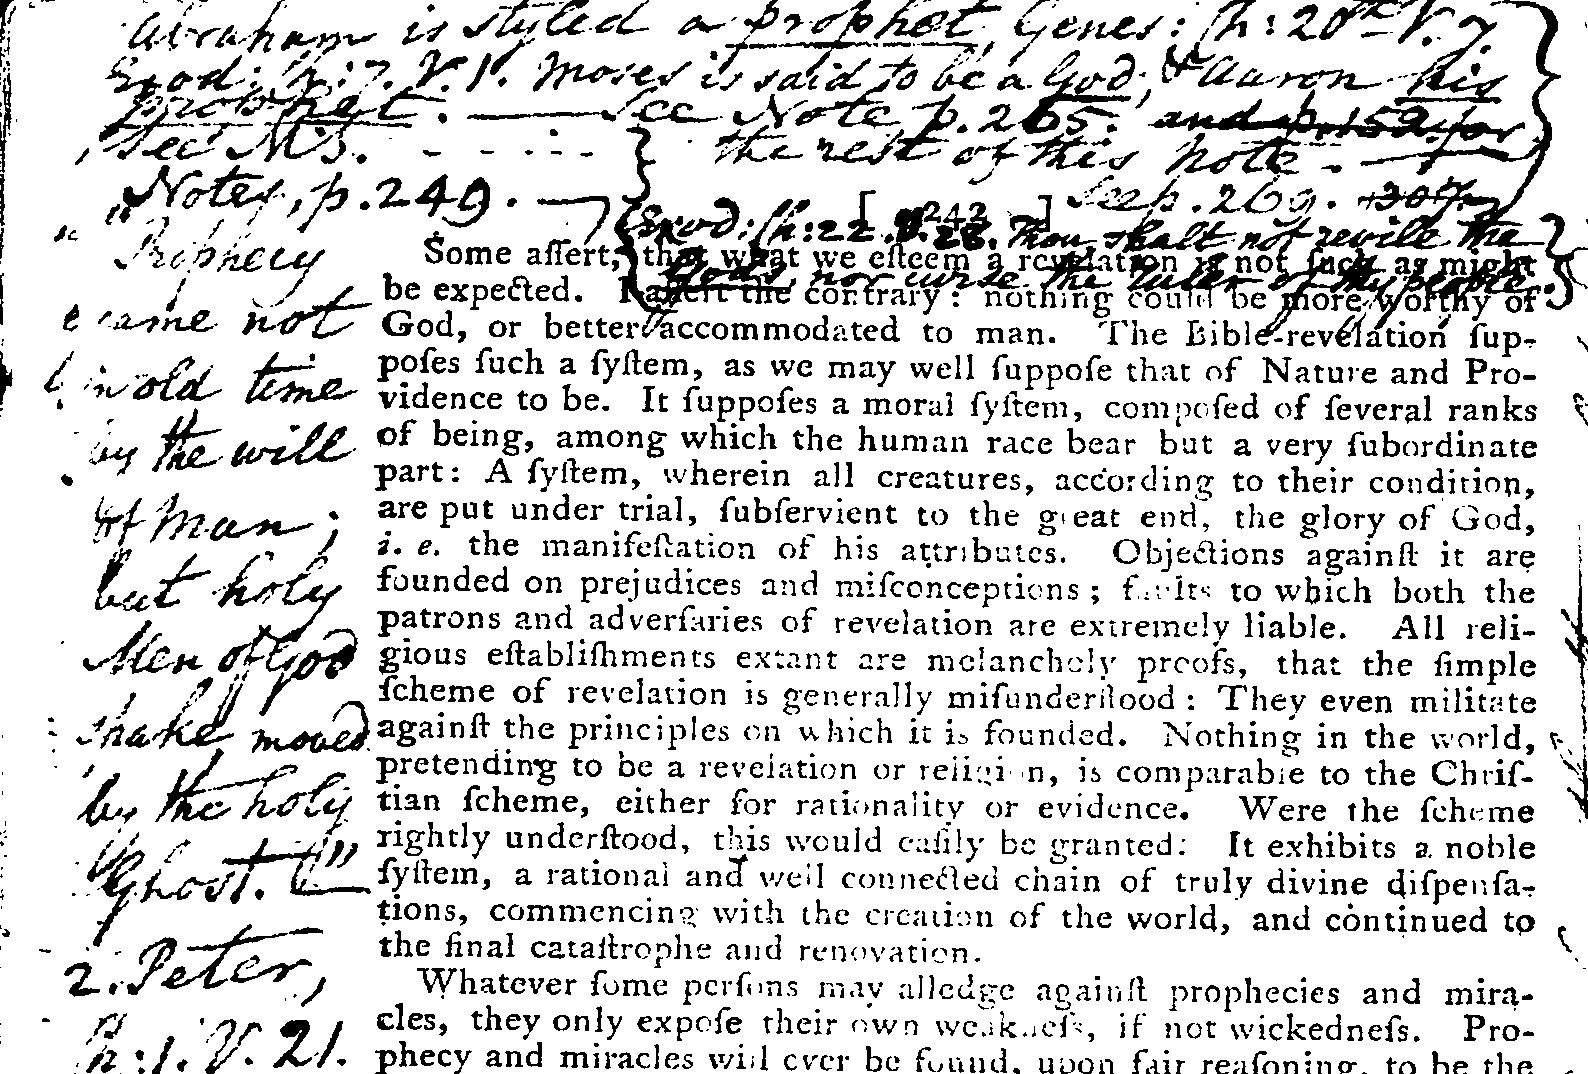 Abraham is styled a prophet, Genes: Ch: 20th V. 7.
Exod: Ch: 7. V. 1. Moses is said to be a God, & Aaron his
prophet. — See Note p. 265. and p. 152. for
see MS. the rest of this note. —
Notes, p. 249. — See p. 269.
[242]
Exod: Ch: 22. V. 28. Thou shalt not revile the
Gods, nor curse the ruler of thy people.
"Prophecy
came not
in old time
by the will
of Man;
but holy
Men of God
spake, moved
by the holy
Ghost."
2. Peter,
Ch: 1. V. 21.
Some aſſert, that what we eſteem a revelation is not ſuch as might
be expected. I aſſert the contrary: nothing could be more worthy of
God, or better accommodated to man. The Bible-revelation ſup-
poſes ſuch a ſyſtem, as we may well ſuppoſe that of Nature and Pro-
vidence to be. It ſuppoſes a moral ſyſtem, compoſed of ſeveral ranks
of being, among which the human race bear but a very ſubordinate
part: A ſyſtem, wherein all creatures, according to their condition,
are put under trial, ſubſervient to the great end, the glory of God,
i. e. the manifeſtation of his attributes. Objections againſt it are
founded on prejudices and miſconceptions; faults to which both the
patrons and adverſaries of revelation are extremely liable. All reli-
gious eſtabliſhments extant are melancholy proofs, that the ſimple
ſcheme of revelation is generally miſunderſtood: They even militate
againſt the principles on which it is founded. Nothing in the world,
pretending to be a revelation or religion, is comparable to the Chriſ-
tian ſcheme, either for rationality or evidence. Were the ſcheme
rightly underſtood, this would eaſily be granted: It exhibits a noble
ſyſtem, a rational and well connected chain of truly divine diſpenſa-
tions, commencing with the creation of the world, and continued to
the final cataſtrophe and renovation.
Whatever ſome perſons may alledge againſt prophecies and mira-
cles, they only expoſe their own weakneſs, if not wickedneſs. Pro-
phecy and miracles will ever be found, upon fair reaſoning, to be the